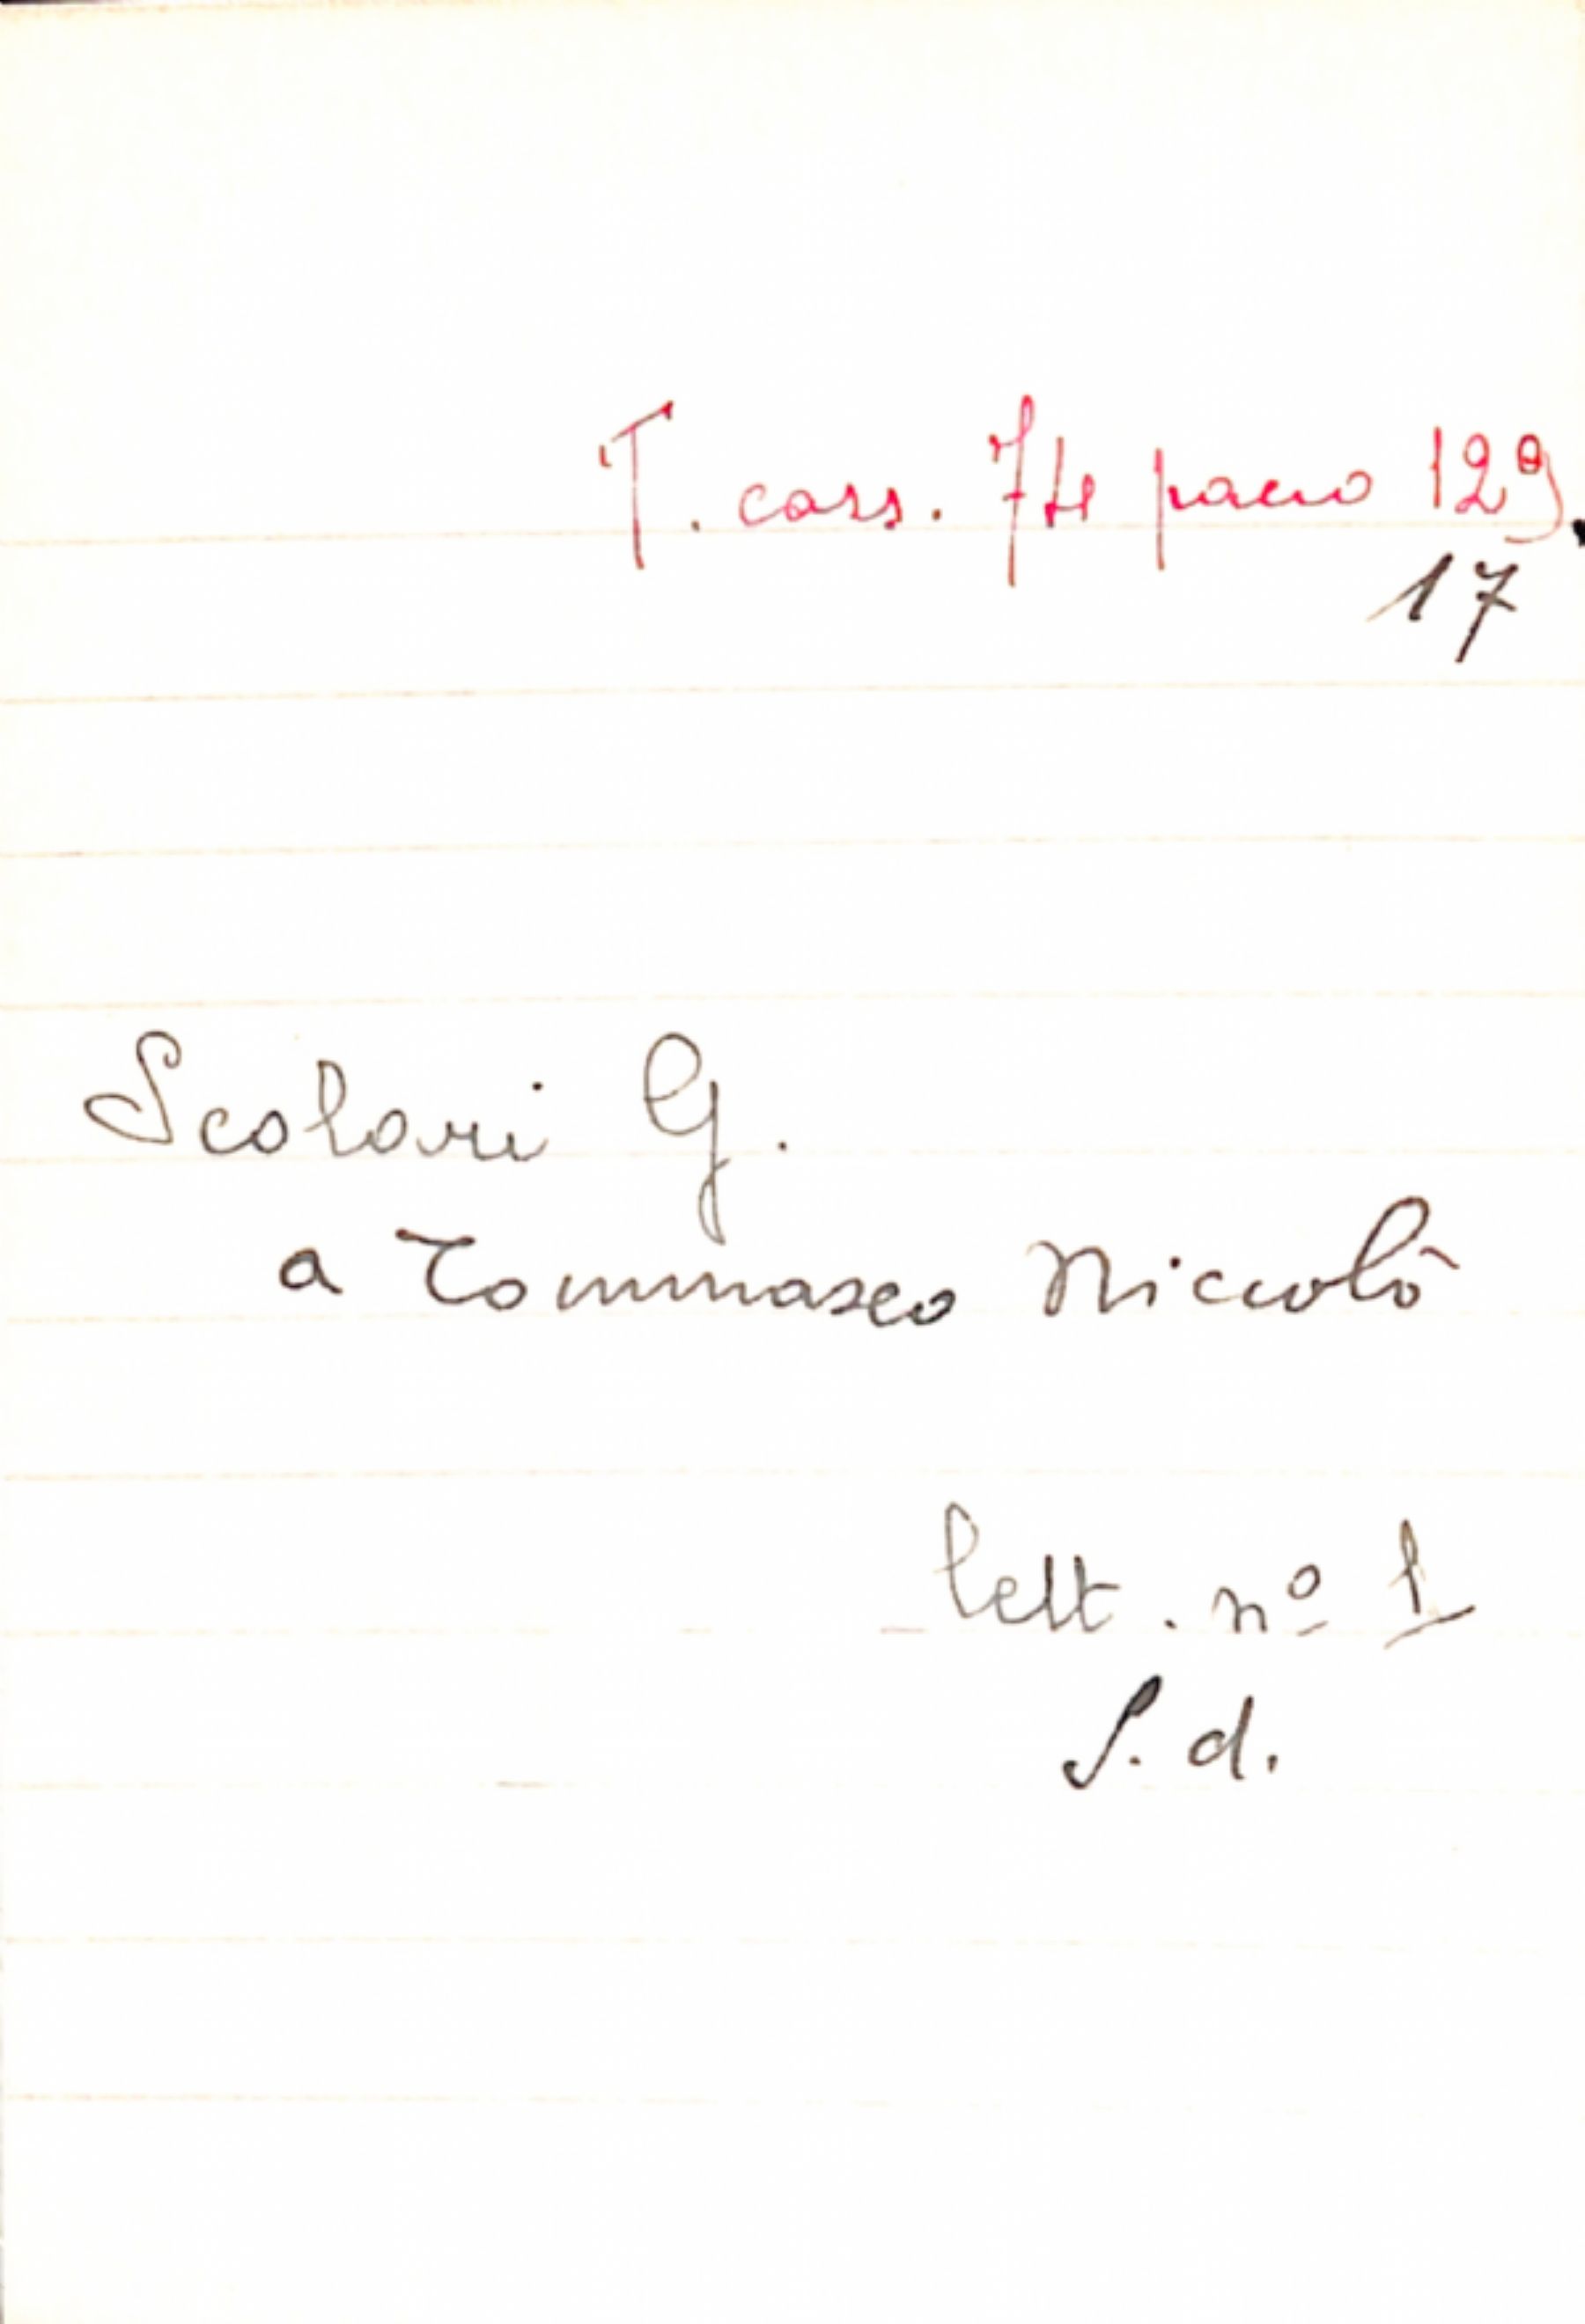 T. cass. 74 pacco 129.
17
Scolari G.
a Tommaseo Niccolò
lett. nº 1
S. d.